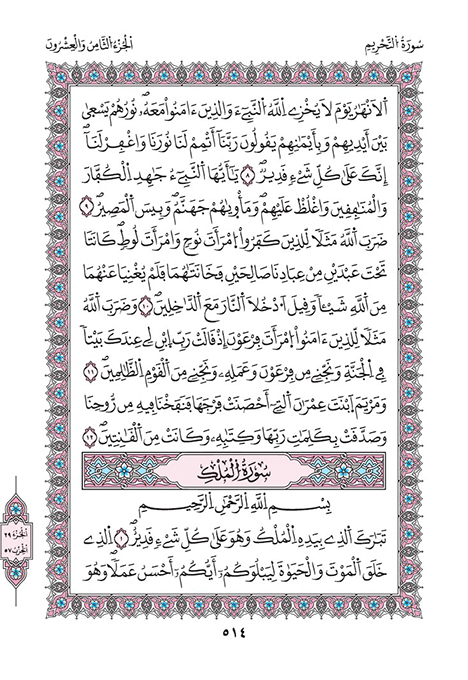 سُورَةُ التَّحْرِيمِ
الْجُزْءُ الثَّامِنُ وَالْعِشْرُونَ
اَ۬لَانْهَٰرُ يَوْمَ لَا يُخْزِے اِ۬للَّهُ اُ۬لنَّبِےٓءَ وَالذِينَ ءَامَنُواْ مَعَهُۥۖ نُورُهُمْ يَسْع۪ىٰ
بَيْنَ أَيْدِيهِمْ وَبِأَيْمَٰنِهِمْ يَقُولُونَ رَبَّنَآ أَتْمِمْ لَنَا نُورَنَا وَاغْفِرْ لَنَآۖ
إِنَّكَ عَلَىٰ كُلِّ شَےْءٖ قَدِيرٞۖ ٨ يَٰٓأَيُّهَا اَ۬لنَّبِےٓءُ جَٰهِدِ اِ۬لْكُفَّارَ
وَالْمُنَٰفِقِينَ وَاغْلُظْ عَلَيْهِمْۖ وَمَأْو۪يٰهُمْ جَهَنَّمُۖ وَبِيسَ اَ۬لْمَصِيرُۖ ٩
ضَرَبَ اَ۬للَّهُ مَثَلاٗ لِّلذِينَ كَفَرُواْ اُ۪مْرَأَتَ نُوحٖ وَامْرَأَتَ لُوطٖۖ كَانَتَا
تَحْتَ عَبْدَيْنِ مِنْ عِبَادِنَا صَٰلِحَيْنِ فَخَانَتَٰهُمَا فَلَمْ يُغْنِيَا عَنْهُمَا
مِنَ اَ۬للَّهِ شَيْـٔاٗ وَقِيلَ اَ۟دْخُلَا اَ۬لنَّارَ مَعَ اَ۬لدَّٰخِلِينَۖ ١٠ وَضَرَبَ اَ۬للَّهُ
مَثَلاٗ لِّلذِينَ ءَامَنُواْ اُ۪مْرَأَتَ فِرْعَوْنَ إِذْ قَالَتْ رَبِّ اِ۪بْنِ لِے عِندَكَ بَيْتاٗ
فِے اِ۬لْجَنَّةِ وَنَجِّنِے مِن فِرْعَوْنَ وَعَمَلِهِۦ وَنَجِّنِے مِنَ اَ۬لْقَوْمِ اِ۬لظَّٰلِمِينَۖ ١١
وَمَرْيَمَ اَ۪بْنَتَ عِمْرَٰنَ اَ۬لتِےٓ أَحْصَنَتْ فَرْجَهَا فَنَفَخْنَا فِيهِ مِن رُّوحِنَا
وَصَدَّقَتْ بِكَلِمَٰتِ رَبِّهَا وَكِتَٰبِهِۦ وَكَانَتْ مِنَ اَ۬لْقَٰنِتِينَۖ ١٢
سُورَةُ الْمُلْكِ
بِسْمِ اِ۬للَّهِ اِ۬لرَّحْمَٰنِ اِ۬لرَّحِيمِ
تَبَٰرَكَ اَ۬لذِے بِيَدِهِ اِ۬لْمُلْكُ وَهُوَ عَلَىٰ كُلِّ شَےْءٖ قَدِيرٌۖ ١ اِ۬لذِے
خَلَقَ اَ۬لْمَوْتَ وَالْحَيَوٰةَ لِيَبْلُوَكُمُۥٓ أَيُّكُمُۥٓ أَحْسَنُ عَمَلاٗۖ وَهُوَ
الْجُزْءُ ٢٩
الْحِزْبُ ٥٧
٥١٤